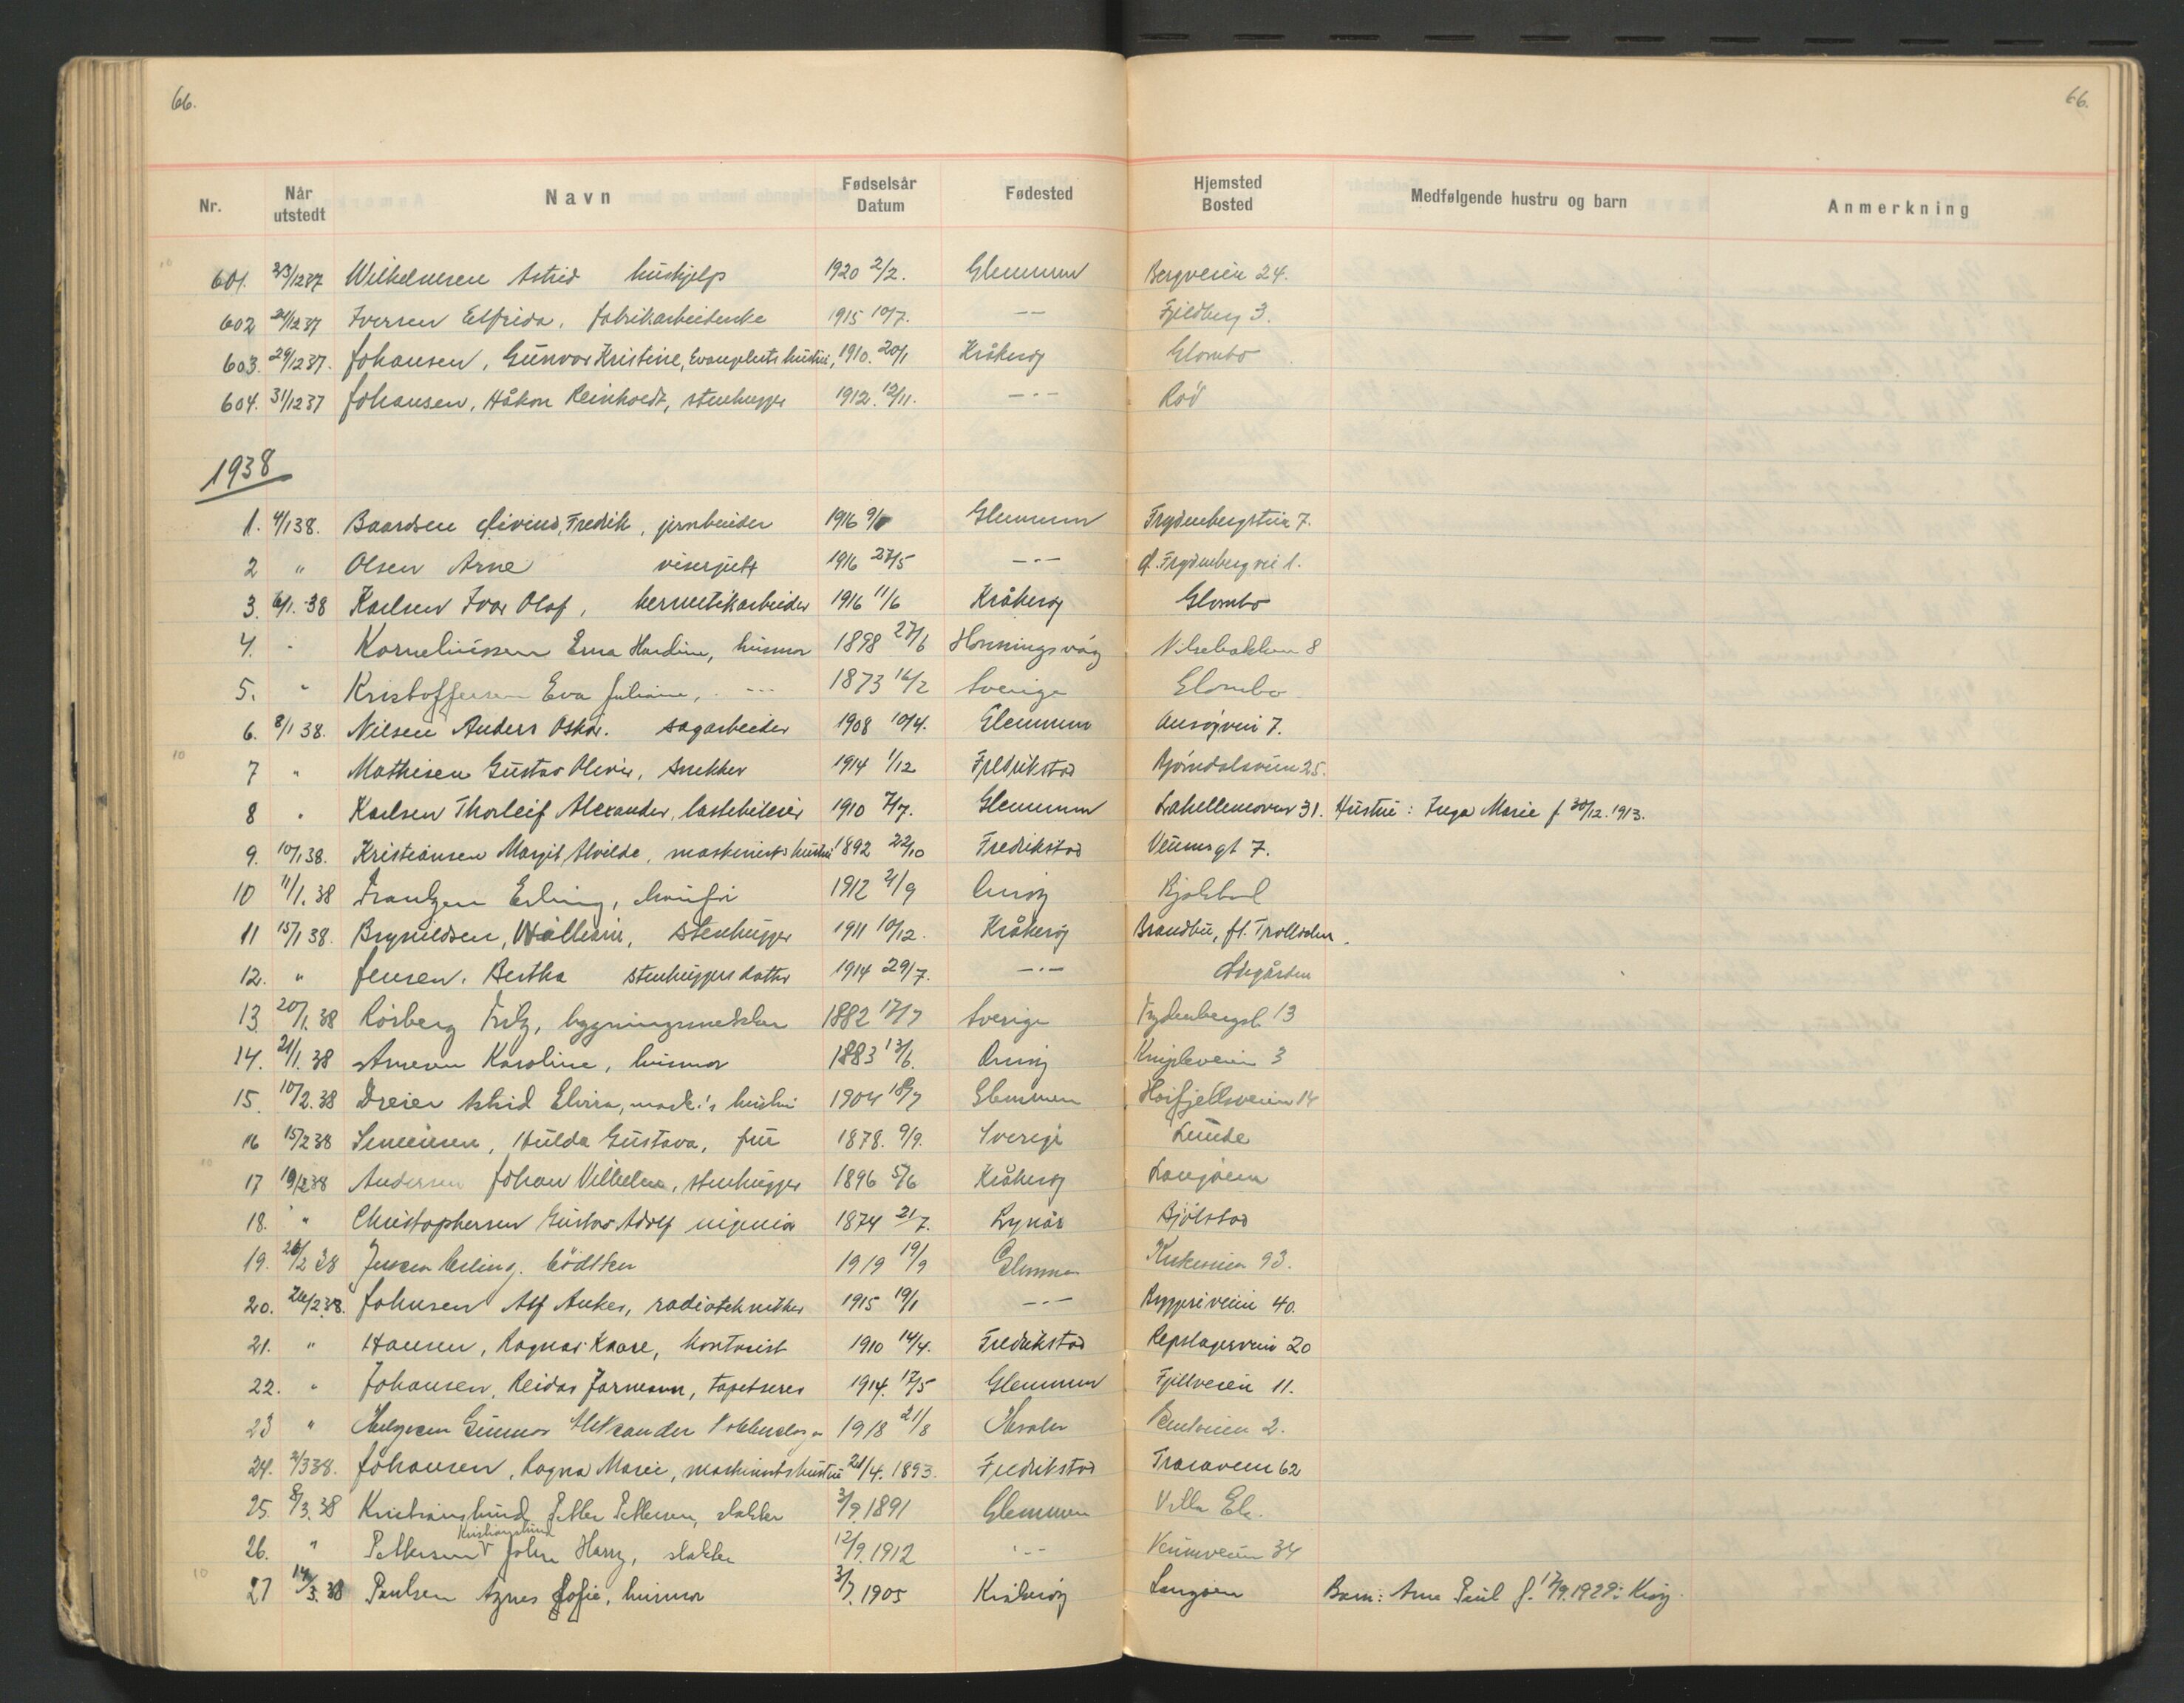 66.
66.
Nr. Når utstedt Navn Fødselsår Datum Fødested Hjemsted Bosted Medfølgende hustru og barn Anmerkning
601. 23/1237 Wilhelmsen Astrid hushjelp 1920 2/2. Glemmen Bergveien 24.
602 24/1237 Iversen Elfrida, fabrikarbeiderske 1915 10/7. — — Fjeldberg 3.
603. 29/1237. Johansen, Gunvor Kristine, Evangelists hustru, 1910. 20/1 Kråkerøy Glombo
604. 31/1237 Johansen, Håkon Reinholdt, stenhugger 1912. 12/11. — · — Rød
1938
1. 4/138. Baardsen Eivind, Fredrik, jernbeider 1916 Glemmen 7.
2 " Olsen Arne visergutt 1916 27/5 — · — Ø. Frydenbergvei 1.
3. 6/1.-38 Karlsen Ivar Olaf, hermetikarbeider 1916 11/6 Kråkerøy Glombo
4. " Korneliussen Erna Hardine, husmor 1898 27/6 Honningsvåg Nilsebakken 8
5. " Kristoffersen Eva Juliane, - - - 1873 16/2 Sverige Glombo
6. 8/1 38. Nilsen Anders Oskar. sagarbeider 1908 10/4. Glemmen Onsøyvei 7.
7 " Mathisen Gustav Oliver, snekker 1914 1/12 Fredrikstad Bjørndalsveien 25.
8 " Karlsen Thorleif Alexander, lastebileier 1910 7/7. Glemmen 31. Hustru: Inga Marie f 30/12. 1913.
9. 10/138. Kristiansen Margit Alvilde, maskinists hustru 1892 22/10 Fredrikstad Veumsgt 7.
10 11/1.38 Frantzen Erling, chauffør 1912 21/9 Onsøy
11 15/1 38. Brynildsen, William, stenhugger 1911 10/12. Kråkerøy Brandbu, fl. Trolldalen.
12. " Jensen. Bertha stenhuggers datter 1914 29/7. — · — Ødegården
13 20/1.38 Rösberg Fritz, bygningssnekker 1882 17/7 Sverige 13
14. 21/1.38 Arnesen Karoline, husmor 1883 13/6. Onsøy Knipleveien 3
15. 10/2.38 Dreier Astrid Elvira, mask.'s hustru 1904 18/7 Glemmen Høifjellsveien 14
16 15/238 Simensen, Hulda Gustava, frue 1878. 9/9. Sverige Lunde
17 19/238 Andersen Johan Vilhelm, stenhugger 1896 5/6 Kråkerøy Langøen
18. " Christophersen Gustav Adolf ingeniør 1874 21/7. Lyngør Bjølstad
19. 26/2 38 Jensen Erling. bödtker 1919 19/9 Glemmen Kirkeveien 93.
20. 26/238. Johnsen Alf Anker, radiotekniker 1915 19/1 — · — Bryggeriveien 40.
21. " Hansen, Ragnar Kaare, kontorist 1910 14/4. Fredrikstad Repslagerveien 20
22. " Johansen, Reidar Jormann, tapetserer 1914. 17/5 Glemmen Fjellveien 11.
23 " Helgesen Gunnar Aleksander 1918 21/8 Hvaler 2.
24. 2/338. Johansen, Ragna Marie, maskinistshustru 21/4. 1893. Fredrikstad Traraveien 62
25. 8/3.38 Kristianslund Petter Pettersen, slakter 3/9. 1891 Glemmen Villa Ek.
26. " Pettersen Kristianslund John Harry, slakter 12/9. 1912 - - - Veumveien 34
27 14/3.38 Paulsen Agnes Sofie, husmor 3/7. 1905 Kråkerøy Langøen Barn: Arne Paul f. 17/9.1928: Krøy.